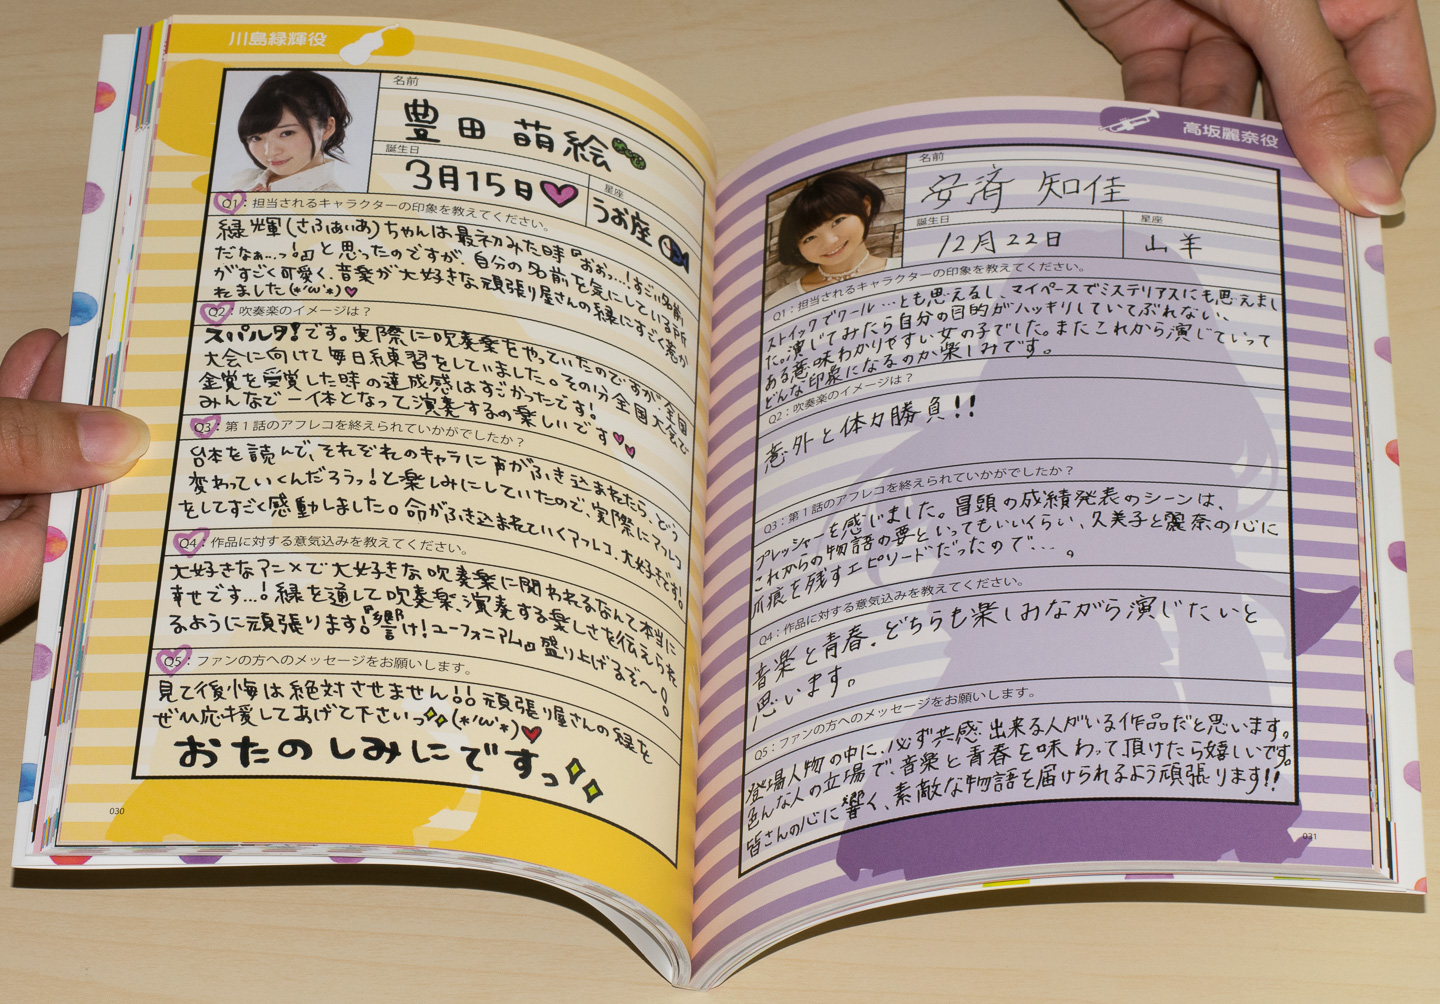 川島緑輝役
名前
豊田 萌絵
誕生日
3月15日
星座
うお座
Q1：担当されるキャラクターの印象を教えてください。
緑輝(さふぁいあ)ちゃんは最初みた時『おおっ…!すごい名前
だなぁ…っ!』と思ったのですが、自分の名前を気にしている所
がすごく可愛く、音楽が大好きな頑張り屋さんの緑にすごく惹か
れました(*'ω'*)
Q2：吹奏楽のイメージは？
スパルタ!です。実際に吹奏楽をやっていたのですが“全国
大会に向けて毎日練習をしていました。その分全国大会で
金賞を受賞した時の達成感はすごかったです!
みんなで一体となって演奏するの楽しいです
Q3：第１話のアフレコを終えられていかがでしたか？
台本を読んで、それぞれのキャラに声がふき込まれたら、どう
変わっていくんだろうっ!と楽しみにしていたので、実際にアフレコ
をしてすごく感動しました。命がふき込まれていくアフレコ、大好きです!
Q4：作品に対する意気込みを教えてください。
大好きなアニメで大好きな吹奏楽に関われるなんて本当に
幸せです…!緑を通して吹奏楽、演奏する楽しさを伝えられ
るように頑張ります!『響け!ユーフォニアム』盛り上げるぞ〜!
Q5：ファンの方へのメッセージをお願いします。
見て後悔は絶対させません!!頑張り屋さんの緑を
ぜひ応援してあげて下さいっ(*'ω'*)
おたのしみにですっ
030
高坂麗奈役
名前
安済 知佳
誕生日
12月22日
星座
山羊
Q1：担当されるキャラクターの印象を教えてください。
ストイックでクール…とも思えるし、マイペースでミステリアスにも思えまし
た。演じてみたら自分の目的がハッキリしていてぶれない、
ある意味わかりやすい女の子でした。またこれから演じていって
どんな印象になるのか楽しみです。
Q2：吹奏楽のイメージは？
意外と体力勝負!!
Q3：第１話のアフレコを終えられていかがでしたか？
プレッシャーを感じました。冒頭の成績発表のシーンは、
これからの物語の要といってもいいくらい、久美子と麗奈の心に
爪痕を残すエピソードだったので…。
Q4：作品に対する意気込みを教えてください。
音楽と青春。どちらも楽しみながら演じたいと
思います。
Q5：ファンの方へのメッセージをお願いします。
登場人物の中に、必ず共感出来る人がいる作品だと思います。
色んな人の立場で、音楽と青春を味わって頂けたら嬉しいです。
皆さんの心に響く、素敵な物語を届けられるよう頑張ります!!
031